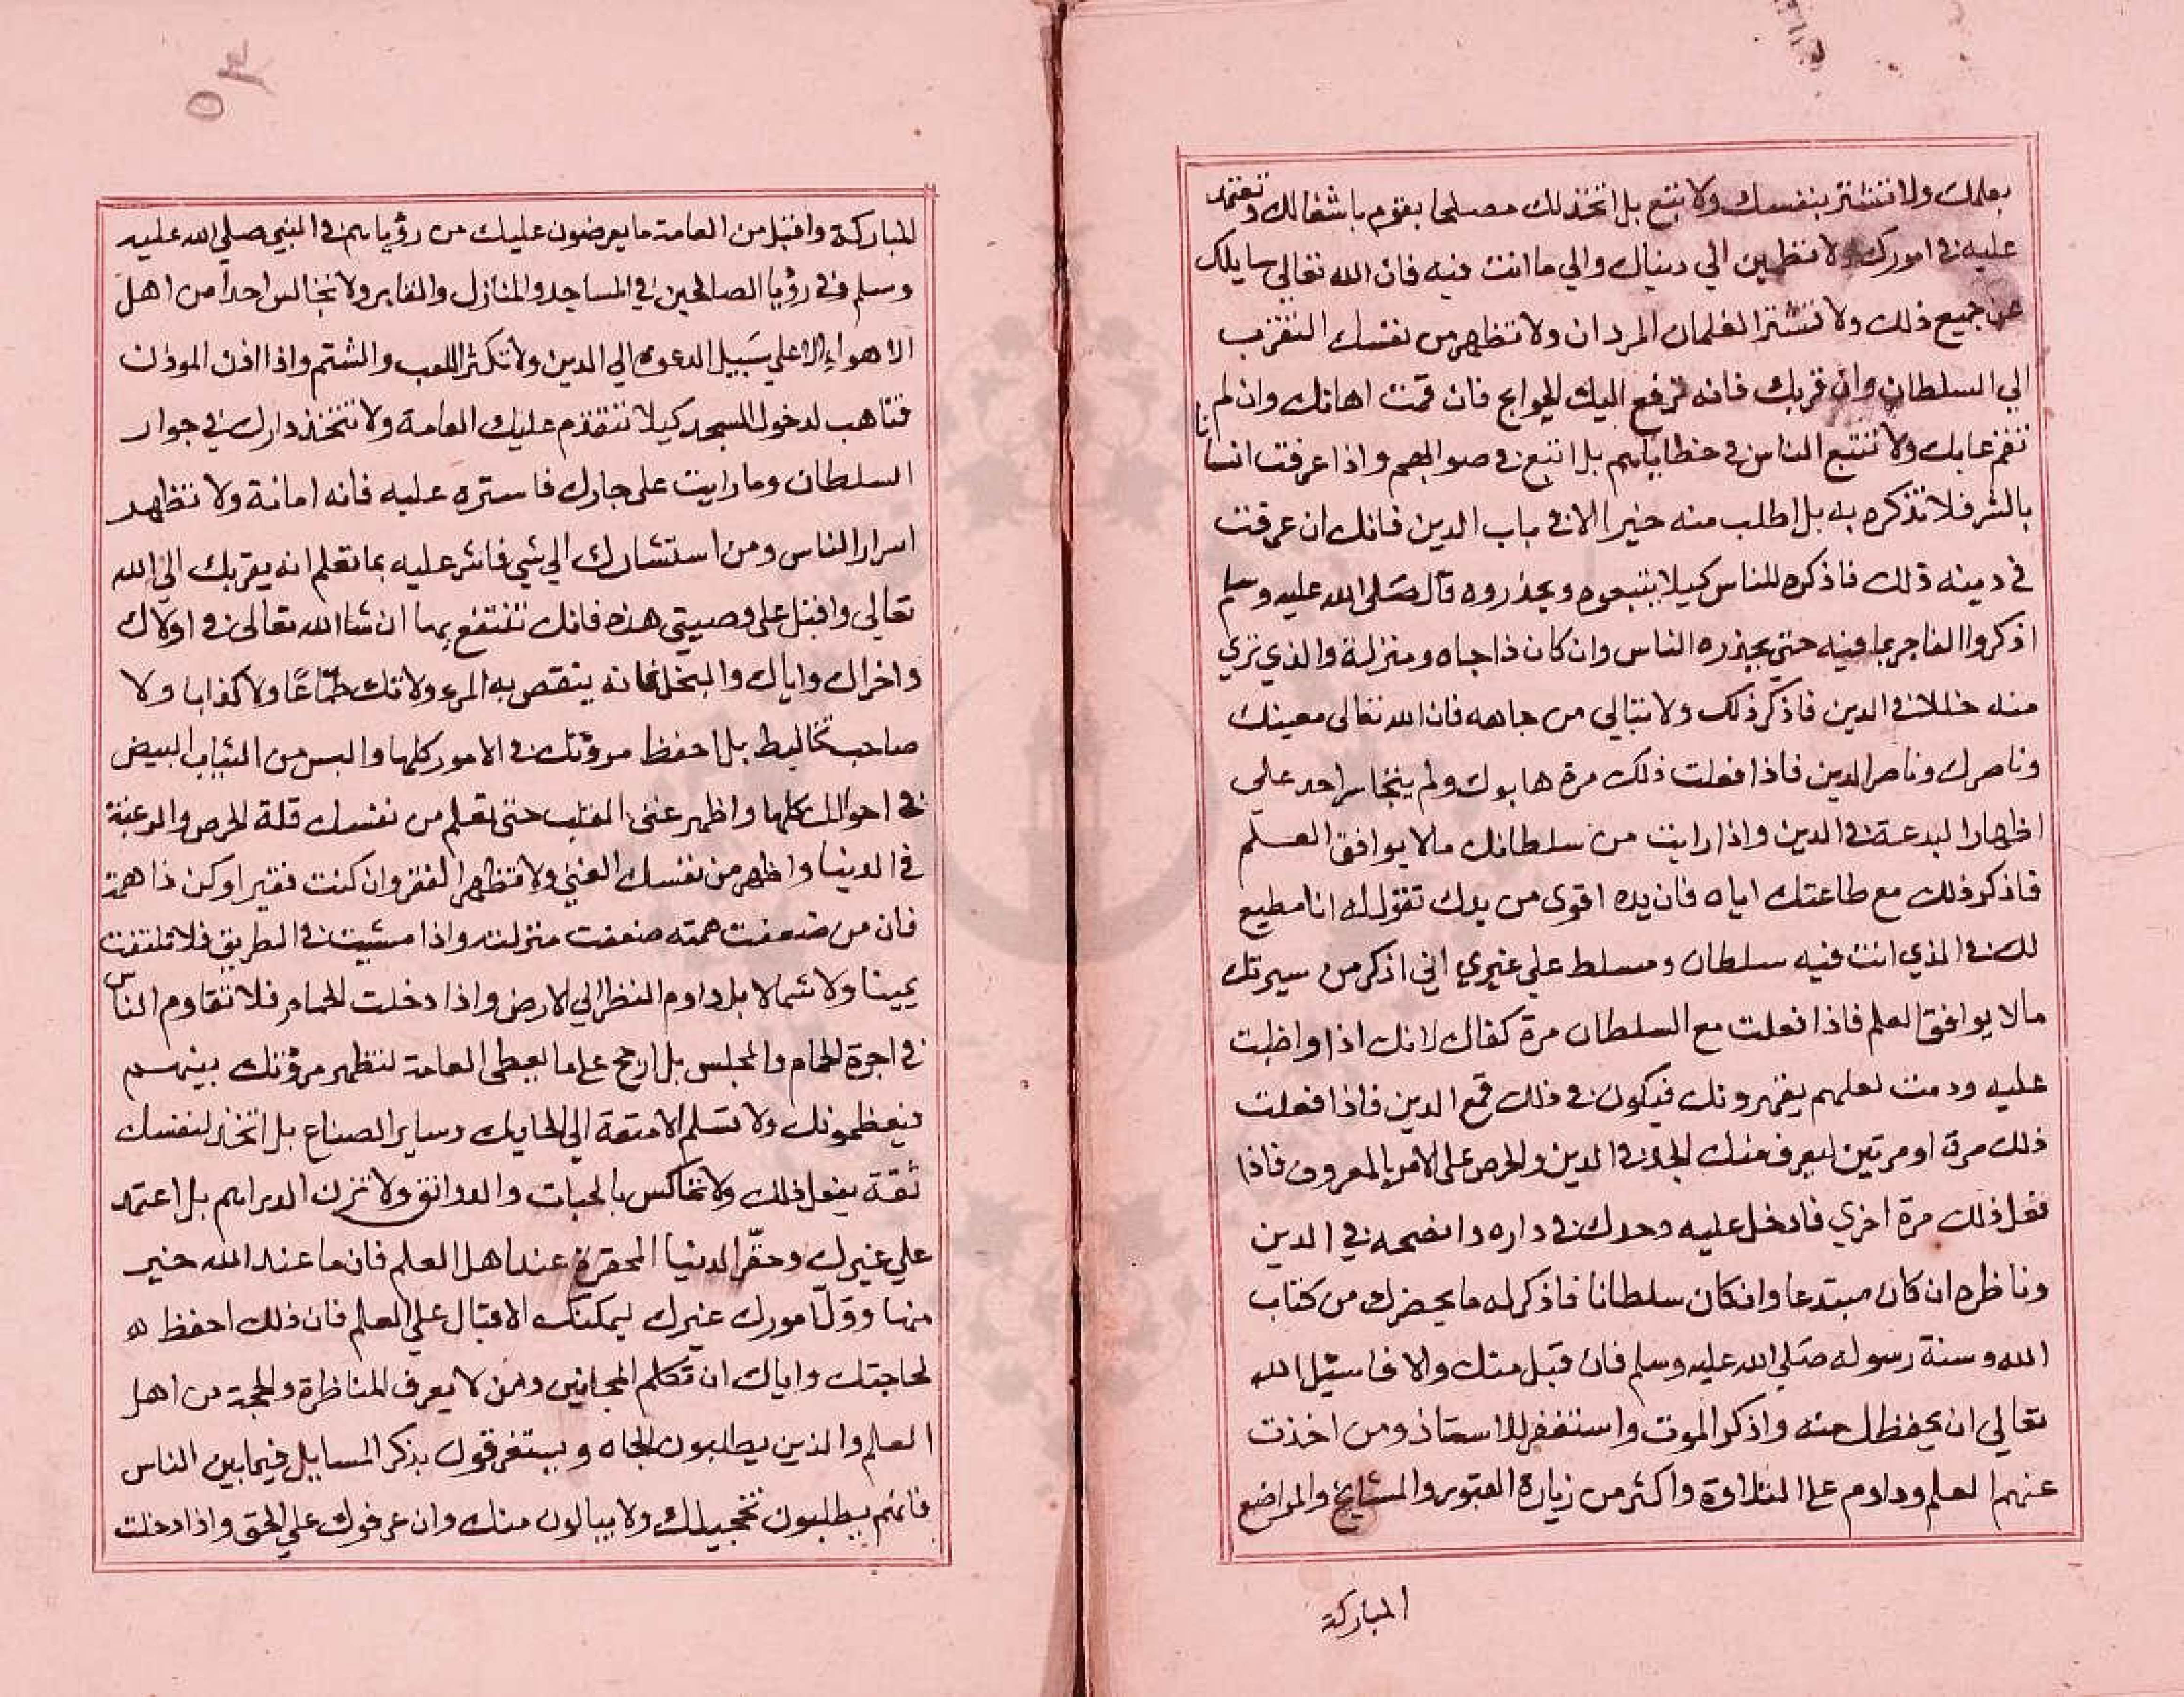 بعلمك ولا تشتر بنفسك ولا تبع بل اتخذ لك مصلحا يقوم باشغالك وتعتمد
عليه في امورك ولا تطمين الي دنياك والي ما انت فيه فان الله تعالي سايلك
عن جميع ذلك ولا تشتر الغلمان المردان ولا تظهر من نفسك التقرب
الي السلطان وان قربك فانه ترفع اليك الحوايج فان قمت اهانك وان لم
تقم عابك ولا تتبع الناس في خطاياهم بل اتبع في صوابهم واذا عرفت انسانا
بالشر فلا تذكره به بل اطلب منه خيرا الا في باب الدين فانك ان عرفت
في دينه ذلك فاذكره للناس كيلا يتبعوه ويحذروه قال صلي الله عليه وسلم
اذكروا الفاجر بما فيه حتي يحذره الناس وان كان ذا جاه ومنزلة والذي تري
منه خللا في الدين فاذكر ذلك ولا تبالي من جاهه فان الله تعالى معينك
وناصرك وناصر الدين فاذا فعلت ذلك مرة هابوك ولم يتجاسر احد علي
اظهار البدعة في الدين واذا رايت من سلطانك مالا يوافق العلم
فاذكر ذلك مع طاعتك اياه فان يده اقوى من يدك تقول له انا مطيع
لك في الذي انت فيه سلطان ومسلط علي غيري اني اذكر من سيرتك
مالا يوافق العلم فاذا فعلت مع السلطان مرة كفاك لانك اذا واظبت
عليه ودمت لعلهم يقهرونك فيكون في ذلك قمع الدين فاذا فعلت
ذلك مرة او مرتين ليعرف منك الجد في الدين والحرص على الامر بالمعروف فاذا
فعل ذلك مرة اخري فادخل عليه وحدك في داره وانصحه في الدين
وناظره ان كان مبتدعا وان كان سلطانا فاذكر له ما يحضرك من كتاب
الله وسنة رسوله صلي الله عليه وسلم فان قبل منك والا فاسئل الله
تعالي ان يحفظك منه واذكر الموت واستغفر للاستاذ ومن اخذت
عنهم العلم وداوم على التلاوة واكثر من زيارة القبور والمشايخ والمواضع
المباركة
المباركة واقبل من العامة ما يعرضون عليك من رؤياهم في النبي صلي الله عليه
وسلم وفي رؤيا الصالحين في المساجد والمنازل والمقابر ولا تجالس احدا من اهل
الاهواء الا علي سبيل الدعوه الي الدين ولا تكثر اللعب والشتم واذا اذن الموذن
فتاهب لدخول المسجد كيلا تتقدم عليك العامة ولا تتخذ دارك في جوار
السلطان وما رايت على جارك فاستره عليه فانه امانة ولا تظهر
اسرار الناس ومن استشارك الي شي فاشر عليه بما تعلم انه يقربك الى الله
تعالي واقبل على وصيتي هذه فانك تنتفع بها ان شا الله تعالى في اولاك
واخراك واياك والبخل فانه ينقص به المرء ولا تك طماعا ولا كذابا ولا
صاحب تخاليط بل احفظ مروتك في الامور كلها والبس من الثياب البيض
في احوالك كلها واظهر غنى القلب حتى تعلم من نفسك قلة الحرص والرغبة
في الدينا واظهر من نفسك الغني ولا تظهر الفقر وان كنت فقيرا وكن ذا همة
فان من ضعفت همته ضعفت منزلته واذا مشيت في الطريق فلا تلتفت
يمينا ولا شمالا بل داوم النظر الي الارض واذا دخلت الحمام فلا تقاوم الناس
في اجرة الحمام والمجلس بل ارجح على ما يعطى العامة لتظهر مروتك بينهم
فيعظمونك ولا تسلم الامتعة الي الحايك وساير الصناع بل اتخذ لنفسك
ثقة يفعل ذلك ولا تماكس بالحبات والدوانق ولا تزن الدراهم بل اعتمد
علي غيرك وحقر الدنيا المحقرة عند اهل العلم فان ما عند الله خير
منها وول امورك غيرك ليمكنك الاقبال علي العلم فان ذلك احفظ
لحاجتك واياك ان تكلم المجانين ومن لا يعرف المناظرة والحجة من اهل
العلم والذين يطلبون الجاه ويستغرقون بذكر المسايل فيما بين الناس
فانهم يطلبون تخجيلك ولا يبالون منك وان عرفوك علي الحق واذا دخلت